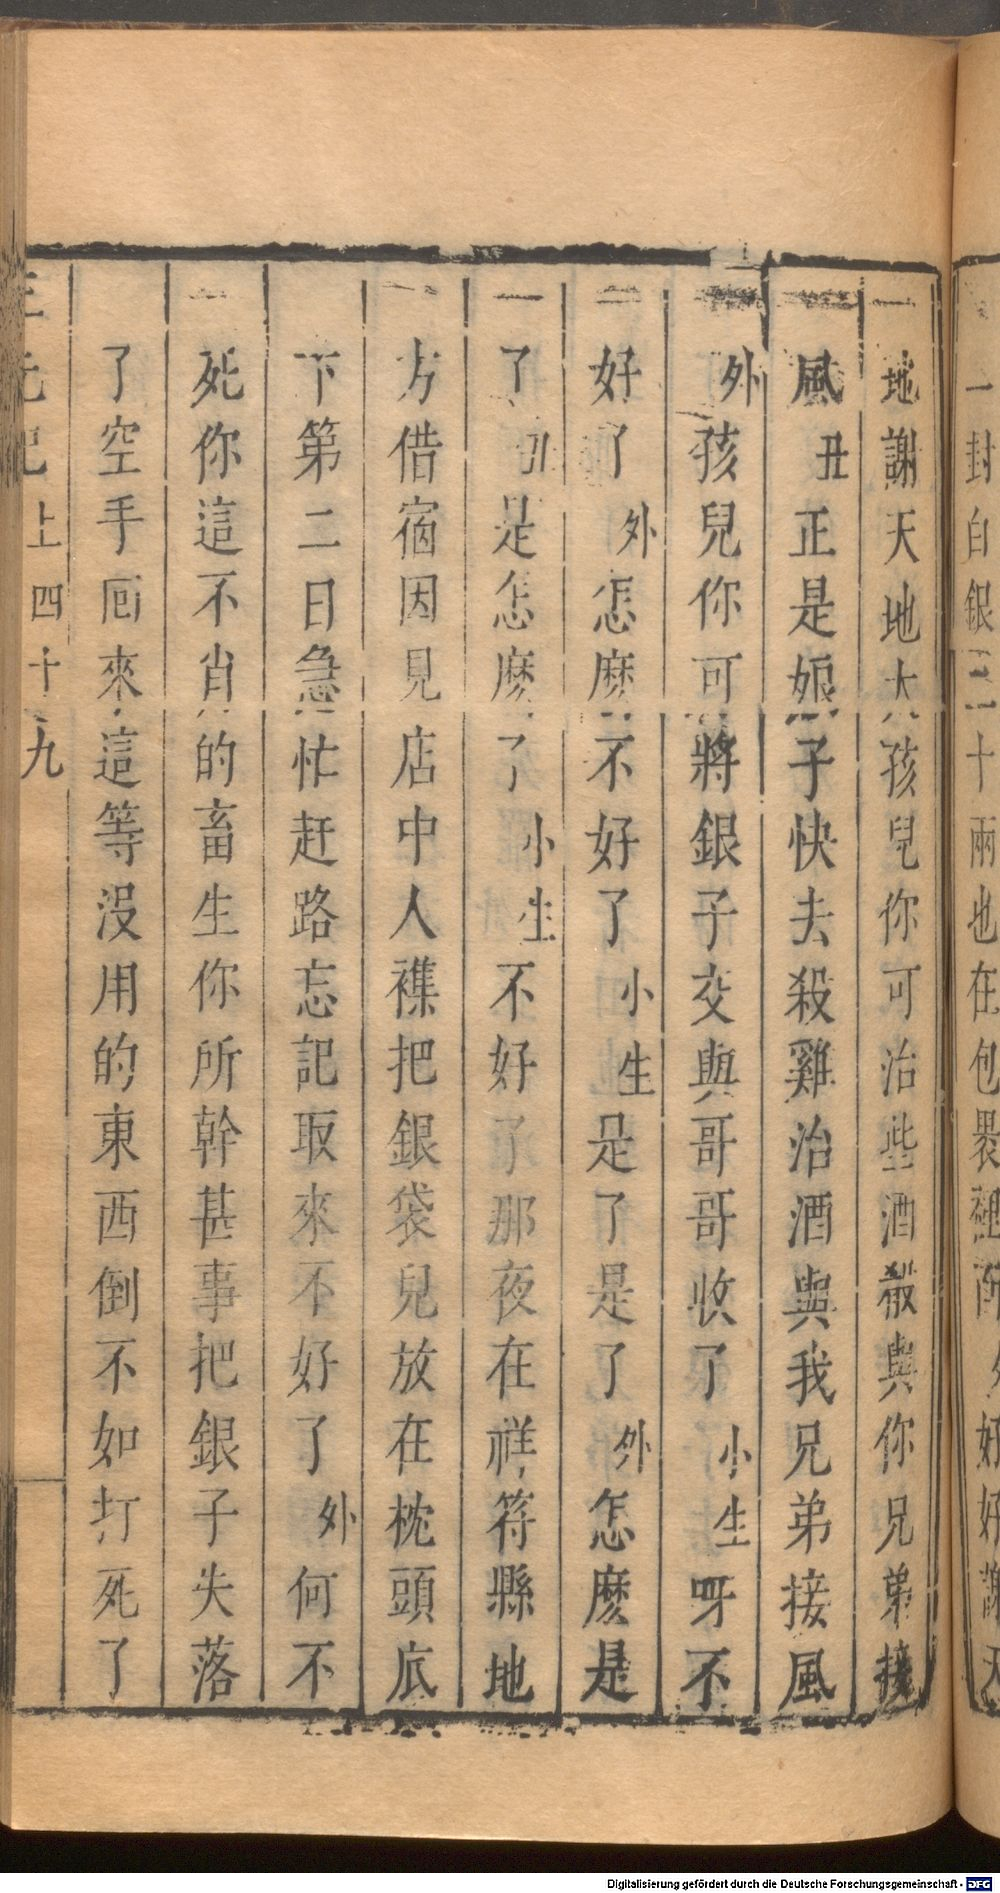 一封白銀三十兩也在包裹
好好謝天
地謝天地大孩兒你可治些酒殽與你兄弟接
風丑正是娘子快去殺雞治酒與我兄弟接風
外孩兒你可將銀子交與哥哥收了小生呀不
好了外怎麽不好了小生是了是了外怎麽是
了丑是怎麽了小生不好了那夜在祥符縣地
方借宿因見店中人襍把銀袋兒放在枕頭底
下第二日急忙赶路忘記取來不好了外何不
死你這不肖的畜生你所幹甚事把銀子失落
了空手囘來這等沒用的東西倒不如打死了
上四十九
Digitalisierung gefördert durch die Deutsche Forschungsgemeinschaft - DFG